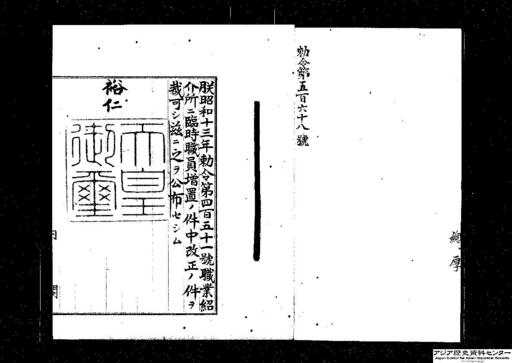 勅令第五百六十八號
朕昭和十三年勅令第四百五十一號職業紹
介所ニ臨時職員增置ノ件中改正ノ件ヲ
裁可シ茲ニ之ヲ公布セシム
裕仁
天皇
御璽
内閣
アジア歴史資料センター
Japan Center for Asian Historical Records